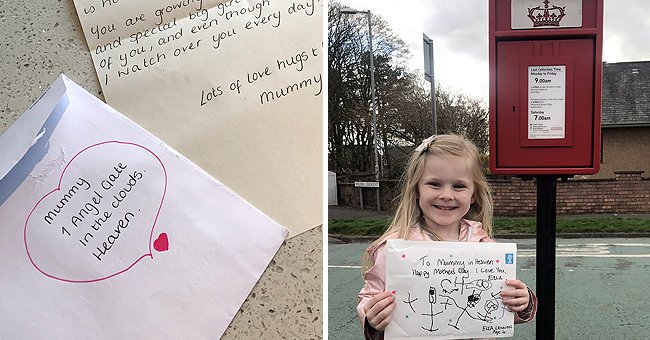 is
You are growing
and special big girl
of you, and even though
I watch over you every day!
Lots of love hugs +
Mummy
Mummy
1 Angel Gate
In the clouds.
Heaven.
Last Collection Time
Monday to Friday
9.00am
Saturday
7.00am
To Mummy in Heaven
Happy Mothers Day I Love You.
ELLA
ELLA LENNON
Age 4